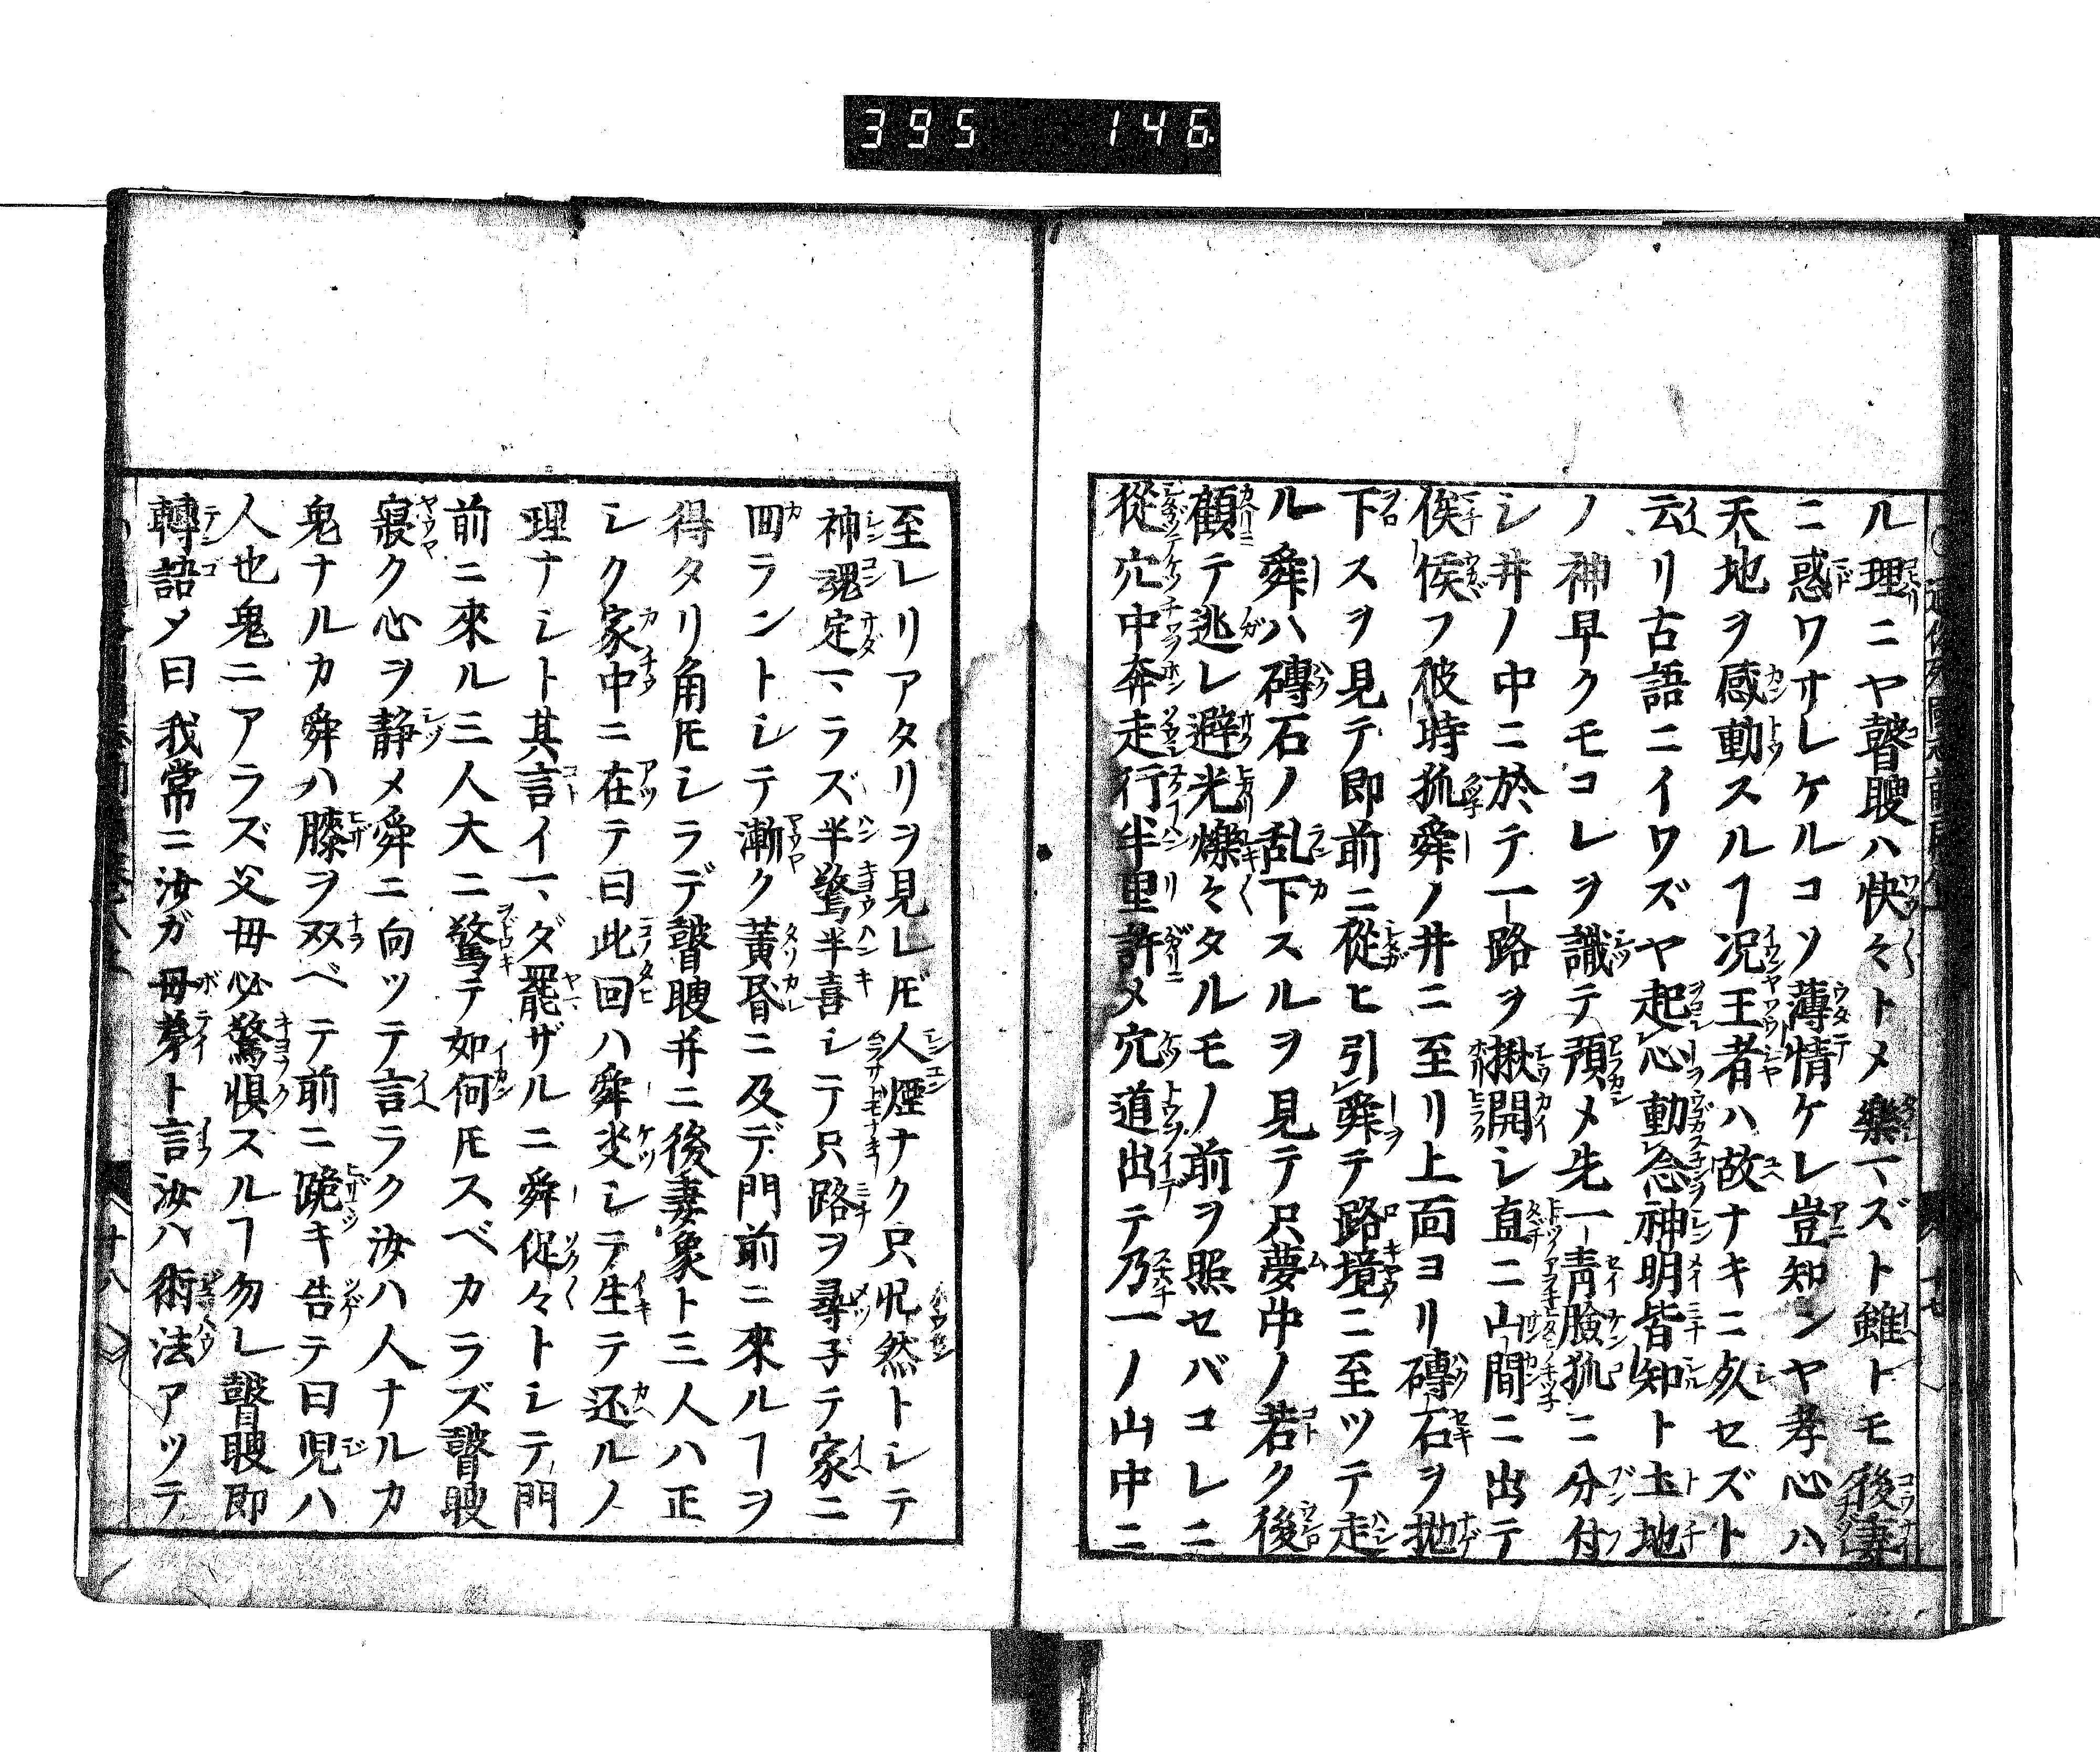 395 146
ル理ニヤ瞽瞍ハ快々トメ樂マズト雖トモ後妻
ニ惑ワサレケルコソ薄情ケレ豈知ンヤ孝心ハ
天地ヲ感動スルヿ况王者ハ故ナキニ死セズト
云リ古語ニイワズヤ起心動念神明皆知ト土地
ノ神早クモコレヲ識テ預メ先一青臉狐ニ分付
シ井ノ中ニ於テ一路ヲ揪開シ直ニ山間ニ出テ
俟候フ彼時狐舜ノ井ニ至リ上面ヨリ磚石ヲ抛
下スヲ見テ即前ニ從ヒ引舜テ路境ニ至ツテ走
ル舜ハ磚石ノ乱下スルヲ見テ只夢中ノ若ク後
顧テ逃レ避光爍々タルモノ前ヲ照セバコレニ
從穴中奔走行半里許メ穴道出テ乃一ノ山中ニ
至レリアタリヲ見レ𪜈人煙ナク只怳然トシテ
神魂定マラズ半驚半喜シテ只路ヲ尋子テ家ニ
回ラントシテ漸ク黄昏ニ及デ門前ニ來ルヿヲ
得タリ角𪜈シラデ瞽瞍并ニ後妻象ト三人ハ正
シク家中ニ在テ曰此回ハ舜决シテ生テ还ルノ
理ナシト其言イマダ罷ザルニ舜促々トシテ門
前ニ來ル三人大ニ驚テ如何𪜈スベカラズ瞽瞍
寢ク心ヲ静メ舜ニ向ツテ言ラク汝ハ人ナルカ
鬼ナルカ舜ハ膝ヲ双ベテ前ニ跪キ告テ曰児ハ
人也鬼ニアラズ父母必驚惧スルヿ勿レ瞽瞍即
轉語メ曰我常ニ汝ガ母弟ト言汝ハ術法アツテ
十八